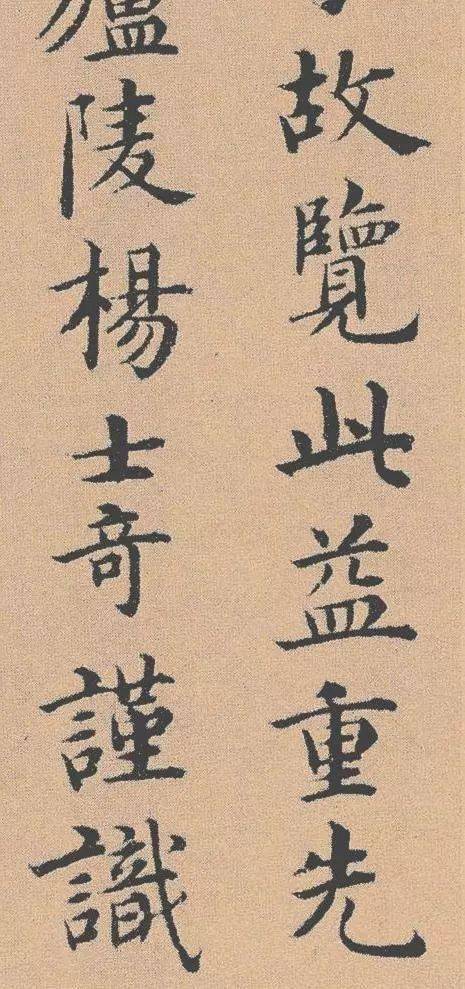 故覽此益重先
廬陵楊士奇謹識